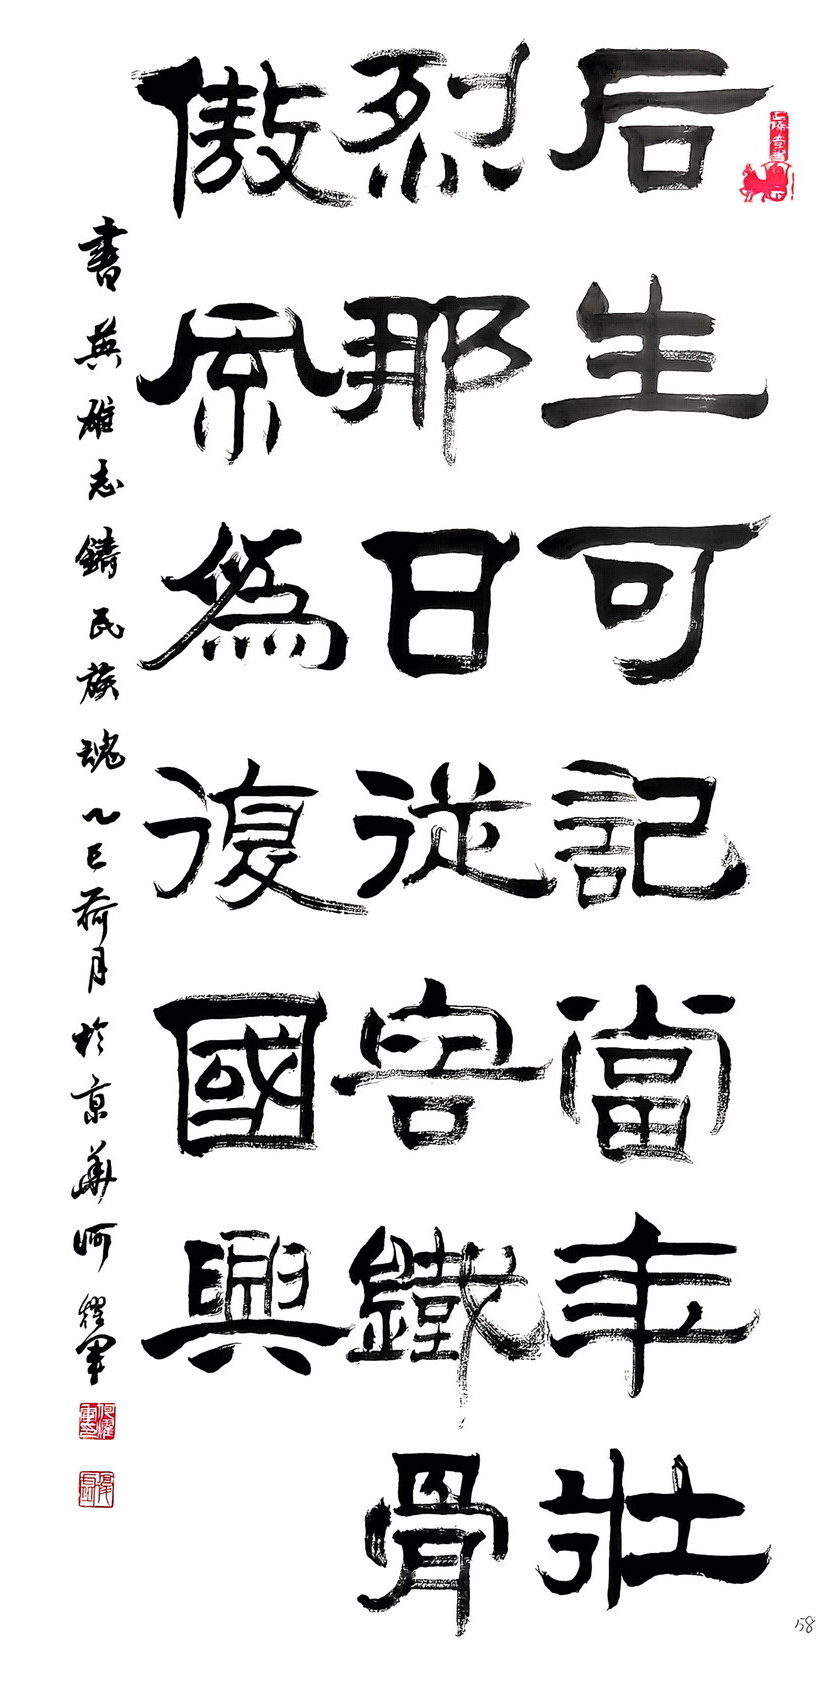 后生可記當年壯
烈那日從容鐵骨
傲宗為復國興
書英雄志鑄民族魂乙巳荷月於京華何耀軍
58